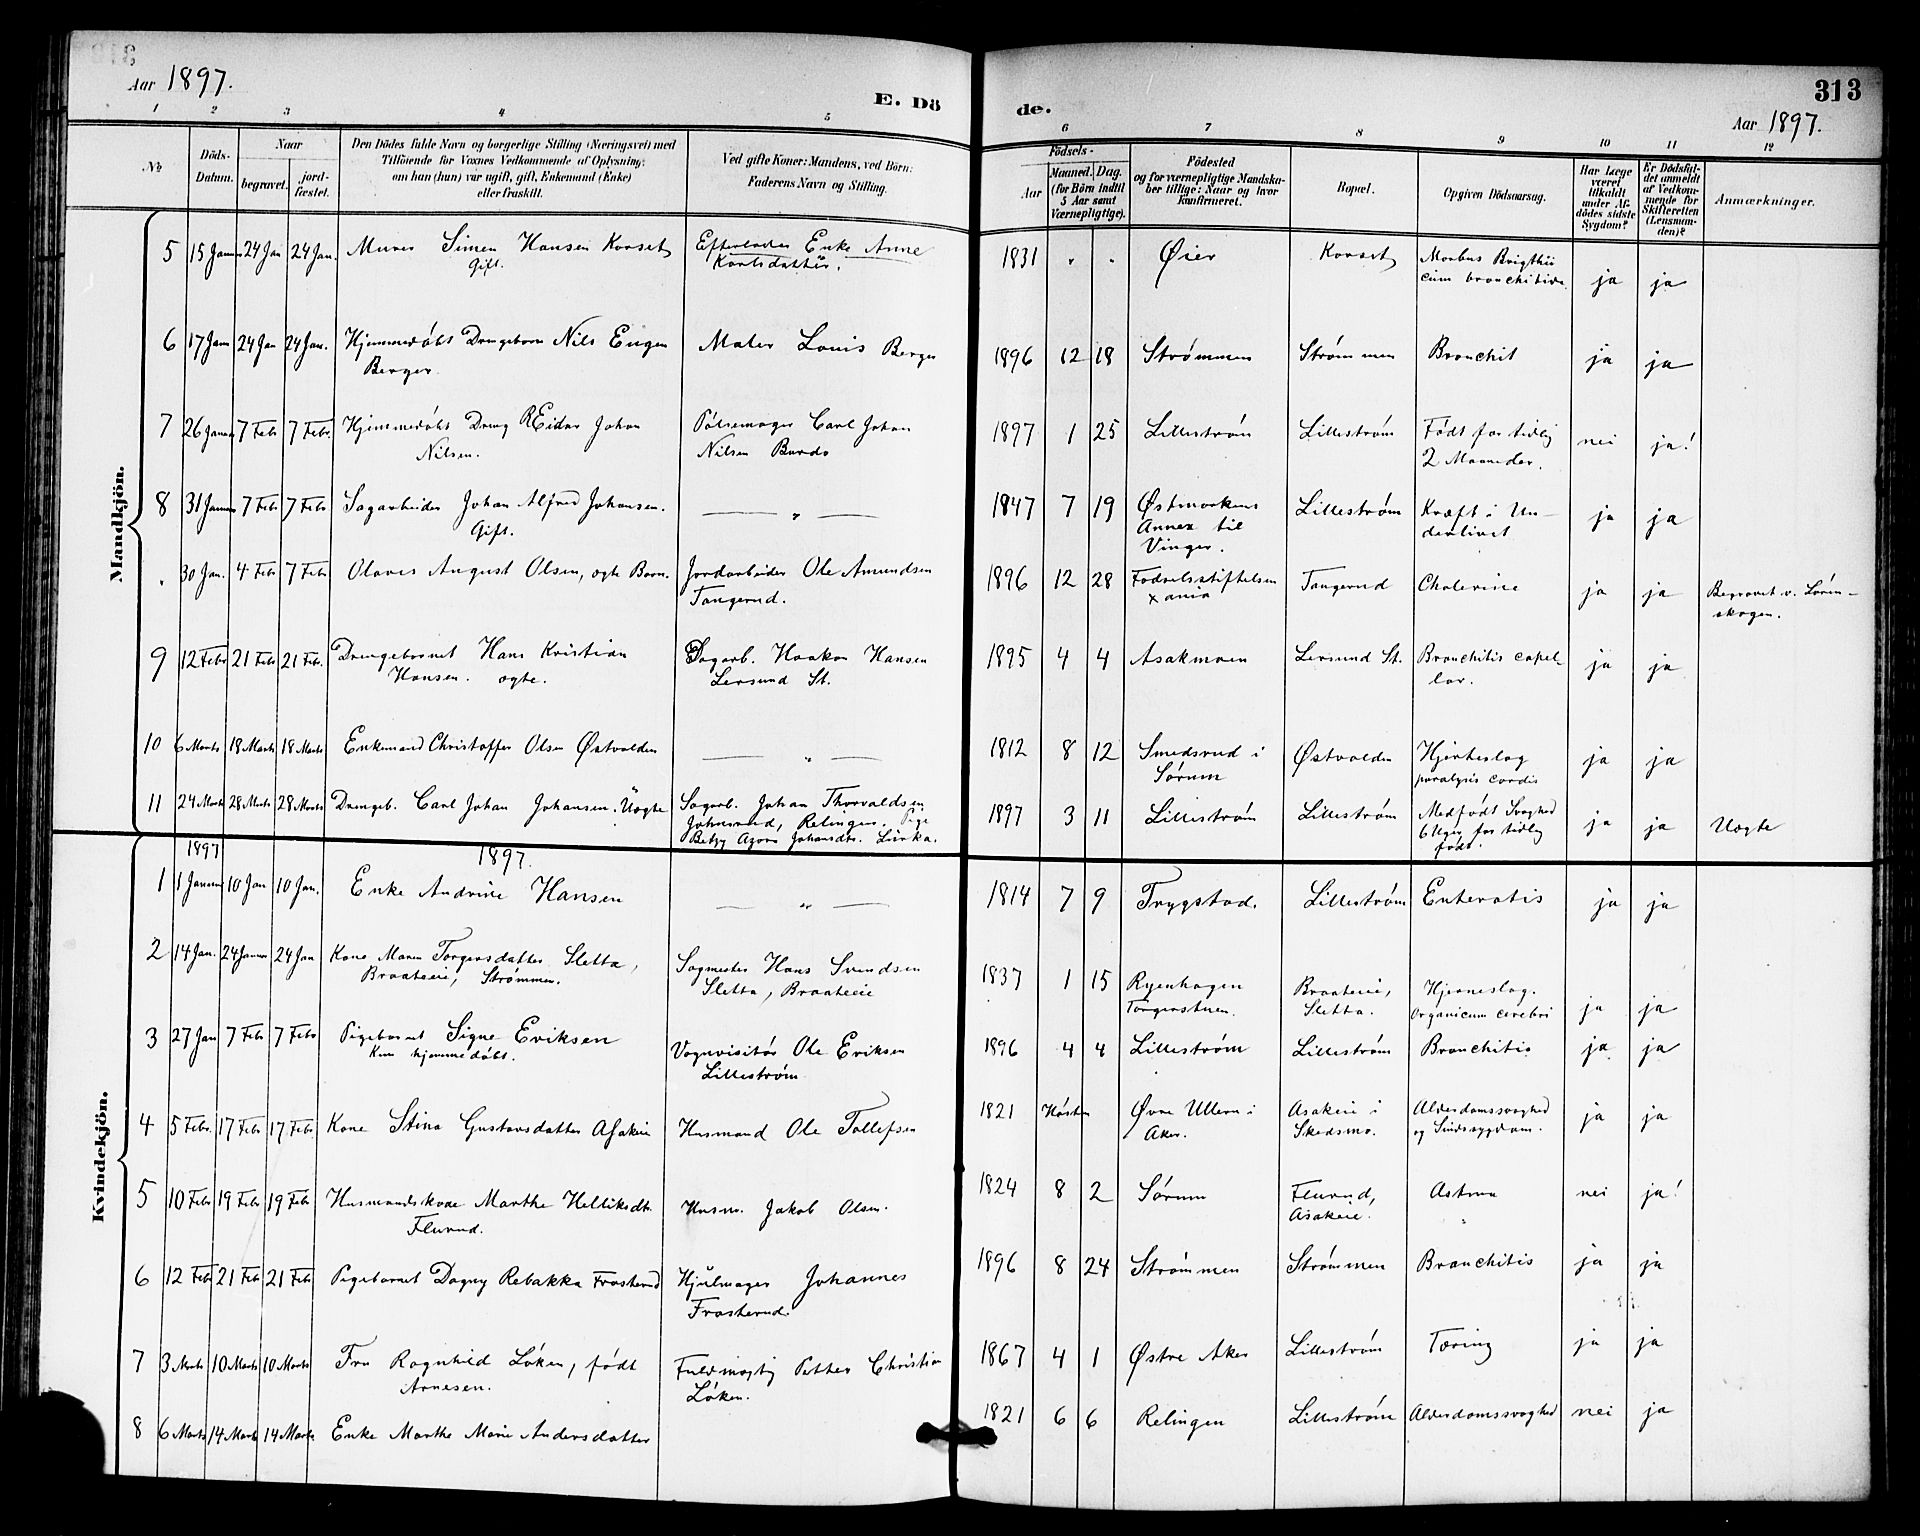 Aar 1897.
E. Dö
de.
313
Aar 1897.
1 2 3 4 5 6 7 8 9 10 11 12
No
Döds-Datum.
Naar
begravet.
jord-fæstet.
Den Dödes fulde Navn og borgerlige Stilling (Næringsvei) med
Tilföiende for Voxnes Vedkommende af Oplysning:
om han (hun) var ugift, gift, Enkemand (Enke)
eller fraskilt.
Ved gifte Koner: Mandens, ved Börn:
Faderens Navn og Stilling.
Födsels-
Aar
Maaned. Dag.
(for Börn indtil
5 Aar samt
Værnepligtige).
Födested
og for værnepligtige Mandska-
ber tillige: Naar og hvor
konfirmeret.
Bopæl.
Opgiven Dödsaarsag.
Har Læge
været
tilkaldt
under Af-
dödes sidste
Sygdom?
Er Dödsfal-
det anmeldt
af Vedkom-
mende for
Skifteretten
(Lensman-
den)?
Anmærkninger.
Mandkjön.
5 15 Januar 24 Jan 24 Jan. Murer Simen Hansen Korset Efterlader Enke Anne 1831 " " Øier Korset Morbus Brigthii ja ja
Gift. Karlsdatter. cum bronchitide
6 17 Jan 24 Jan 24 Jan. Hjemmedøbt Drengebarn Nils Eugen Maler Louis Berger 1896 12 18 Strømmen Strømmen Bronchit ja ja
Berger.
7 26 Januar 7 Febr 7 Febr. Hjemmedøbt Dreng REidar Johan Pølsemager Carl Johan 1897 1 25 Lillestrøm Lillestrøm Født for tidlig nei ja!
Nilsen. Nilsen Bardo 2 Maaneder.
8 31 Januar 7 Febr 7 Febr Sagarbeider Johan Alfred Johansen. — " — 1847 7 19 Østmarkens Lillestrøm Kræft i Un- ja ja
Gift. Annex til derlivet
Vinger.
" 30 Jan. 4 Febr 7 Febr Olaves August Olsen, ægte Barn. Jordarbeider Ole Amundsen 1896 12 28 Fødselsstiftelsen Tangerud Cholerine ja ja Begravet v. Løren-
Tangerud. Xania skogen.
9 12 Febr 21 Febr 21 Febr. Drengebarnet Hans Kristian Sagarb. Haakon Hansen 1895 4 4 Asakmoen Lersund St. Bronchitis capel- ja ja
Hansen. ægte. Lersund St. lar.
10 6 Marts 18 Marts 18 Marts Enkemand Christoffer Olsen Østvolden — " — 1812 8 12 Smedsrud i Østvolden Hjerteslag ja ja
Sørum paralysis cordis
11 24 Marts 28 Marts 28 Marts Drengeb. Carl Johan Johansen. Uægte Sagarb. Johan Thorvaldsen 1897 3 11 Lillestrøm Lillestrøm Medfødt Svaghed ja ja Uægte
Johnsrud, Relingen. Pige 6 Uger for tidlig
Betzy Johansdtr. født.
Kvindekjön.
1897 1897.
1 1 Januar 10 Jan 10 Jan. Enke Andrine Hansen — " — 1814 7 9 Trygstad. Lillestrøm Enteratis ja ja
2 14 Jan. 24 Januar 24 Jan Kone Maren Torgersdatter Sletta, Sagmester Hans Svendsen 1837 1 15 Ryenhagen Braateeie, Hjerneslag. ja ja
Braateeie, Strømmen. Sletta, Braateeie Torgerstuen. Sletta. Organicum cerebri
3 27 Jan 7 Febr 7 Febr Pigebarnet Signe Eriksen Vognvisitør Ole Eriksen 1896 4 4 Lillestrøm Lillestrøm Bronchitis ja ja
Kun hjemmedøbt. Lillestrøm
4 5 Febr. 17 Febr 17 Febr Kone Stina Gustavsdatter Asakeie Husmand Ole Tollefsen 1821 Høsten Øvre Ullern i Asakeie i Alderdomssvaghed ja ja
Aker. Skedsmo. og Sindssygdom.
5 10 Febr 19 Febr 19 Febr Husmandskone Marthe Helliksdtr. Husm. Jakob Olsen. 1824 8 2 Sørum Flurud, Astma nei ja!
Flurud. Asakeie.
6 12 Febr 21 Febr 21 Febr Pigebarnet Dagny Rebakka Frosterud Hjulmager Johannes 1896 8 24 Strømmen Strømmen Bronchitis ja ja
Frosterud.
7 3 Marts 10 Marts 10 Marts Fru Ragnhild Løken, født Fuldmægtig Petter Christian 1867 4 1 Østre Aker Lillestrøm Tæring ja ja
Arnesen. Løken.
8 6 Marts 14 Marts 14 Marts Enke Marthe Marie Andersdatter 1821 6 6 Relingen Lillestrøm Alderdomssvaghed nei ja